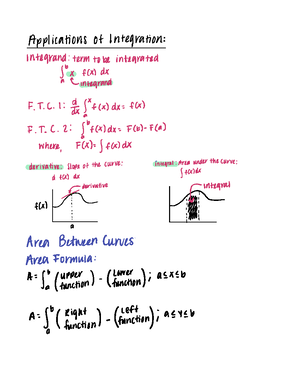 Applications of Integration:
Integrand: term to be integrated
∫_a^b x f(x) dx
integrand
F.T.C. 1: d/dx ∫_a^x f(x) dx = f(x)
F.T.C. 2: ∫_a^b f(x) dx = F(b) - F(a)
where, F(x) = ∫ f(x) dx
derivative: Slope of the curve:
d f(x) dx
derivative
f(x)
a
integral: Area under the curve:
∫ f(x) dx
integral
Area Between Curves
Area Formula:
A = ∫_a^b (upper function) - (Lower function); a ≤ x ≤ b
A = ∫_a^b (Right function) - (Left function); a ≤ y ≤ b